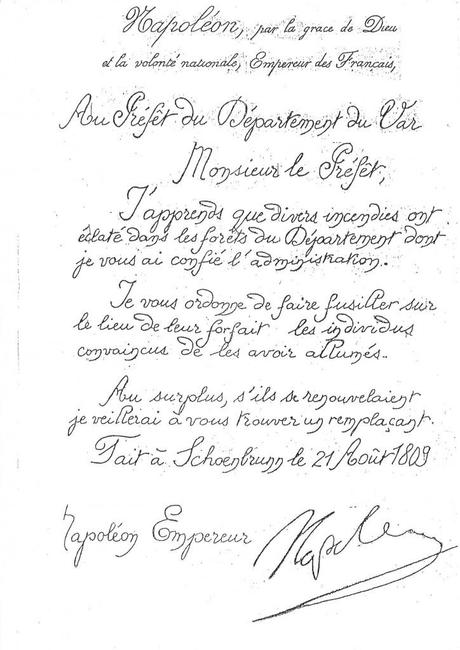 Napoléon, par la grace de Dieu
et la volonté nationale, Empereur des Français,
Au Préfêt du Département du Var
Monsieur le Préfêt,
J'apprends que divers incendies ont
éclaté dans les forêts du Département dont
je vous ai confié l'administration.
Je vous ordonne de faire fusiller sur
le lieu de leur forfait les individus
convaincus de les avoir allumés..
Au surplus, s'ils se renouvelaient
je veillerai à vous trouver un remplaçant.
Fait à Schoenbrunn le 21 Août 1809
Napoléon Empereur
Napoleon